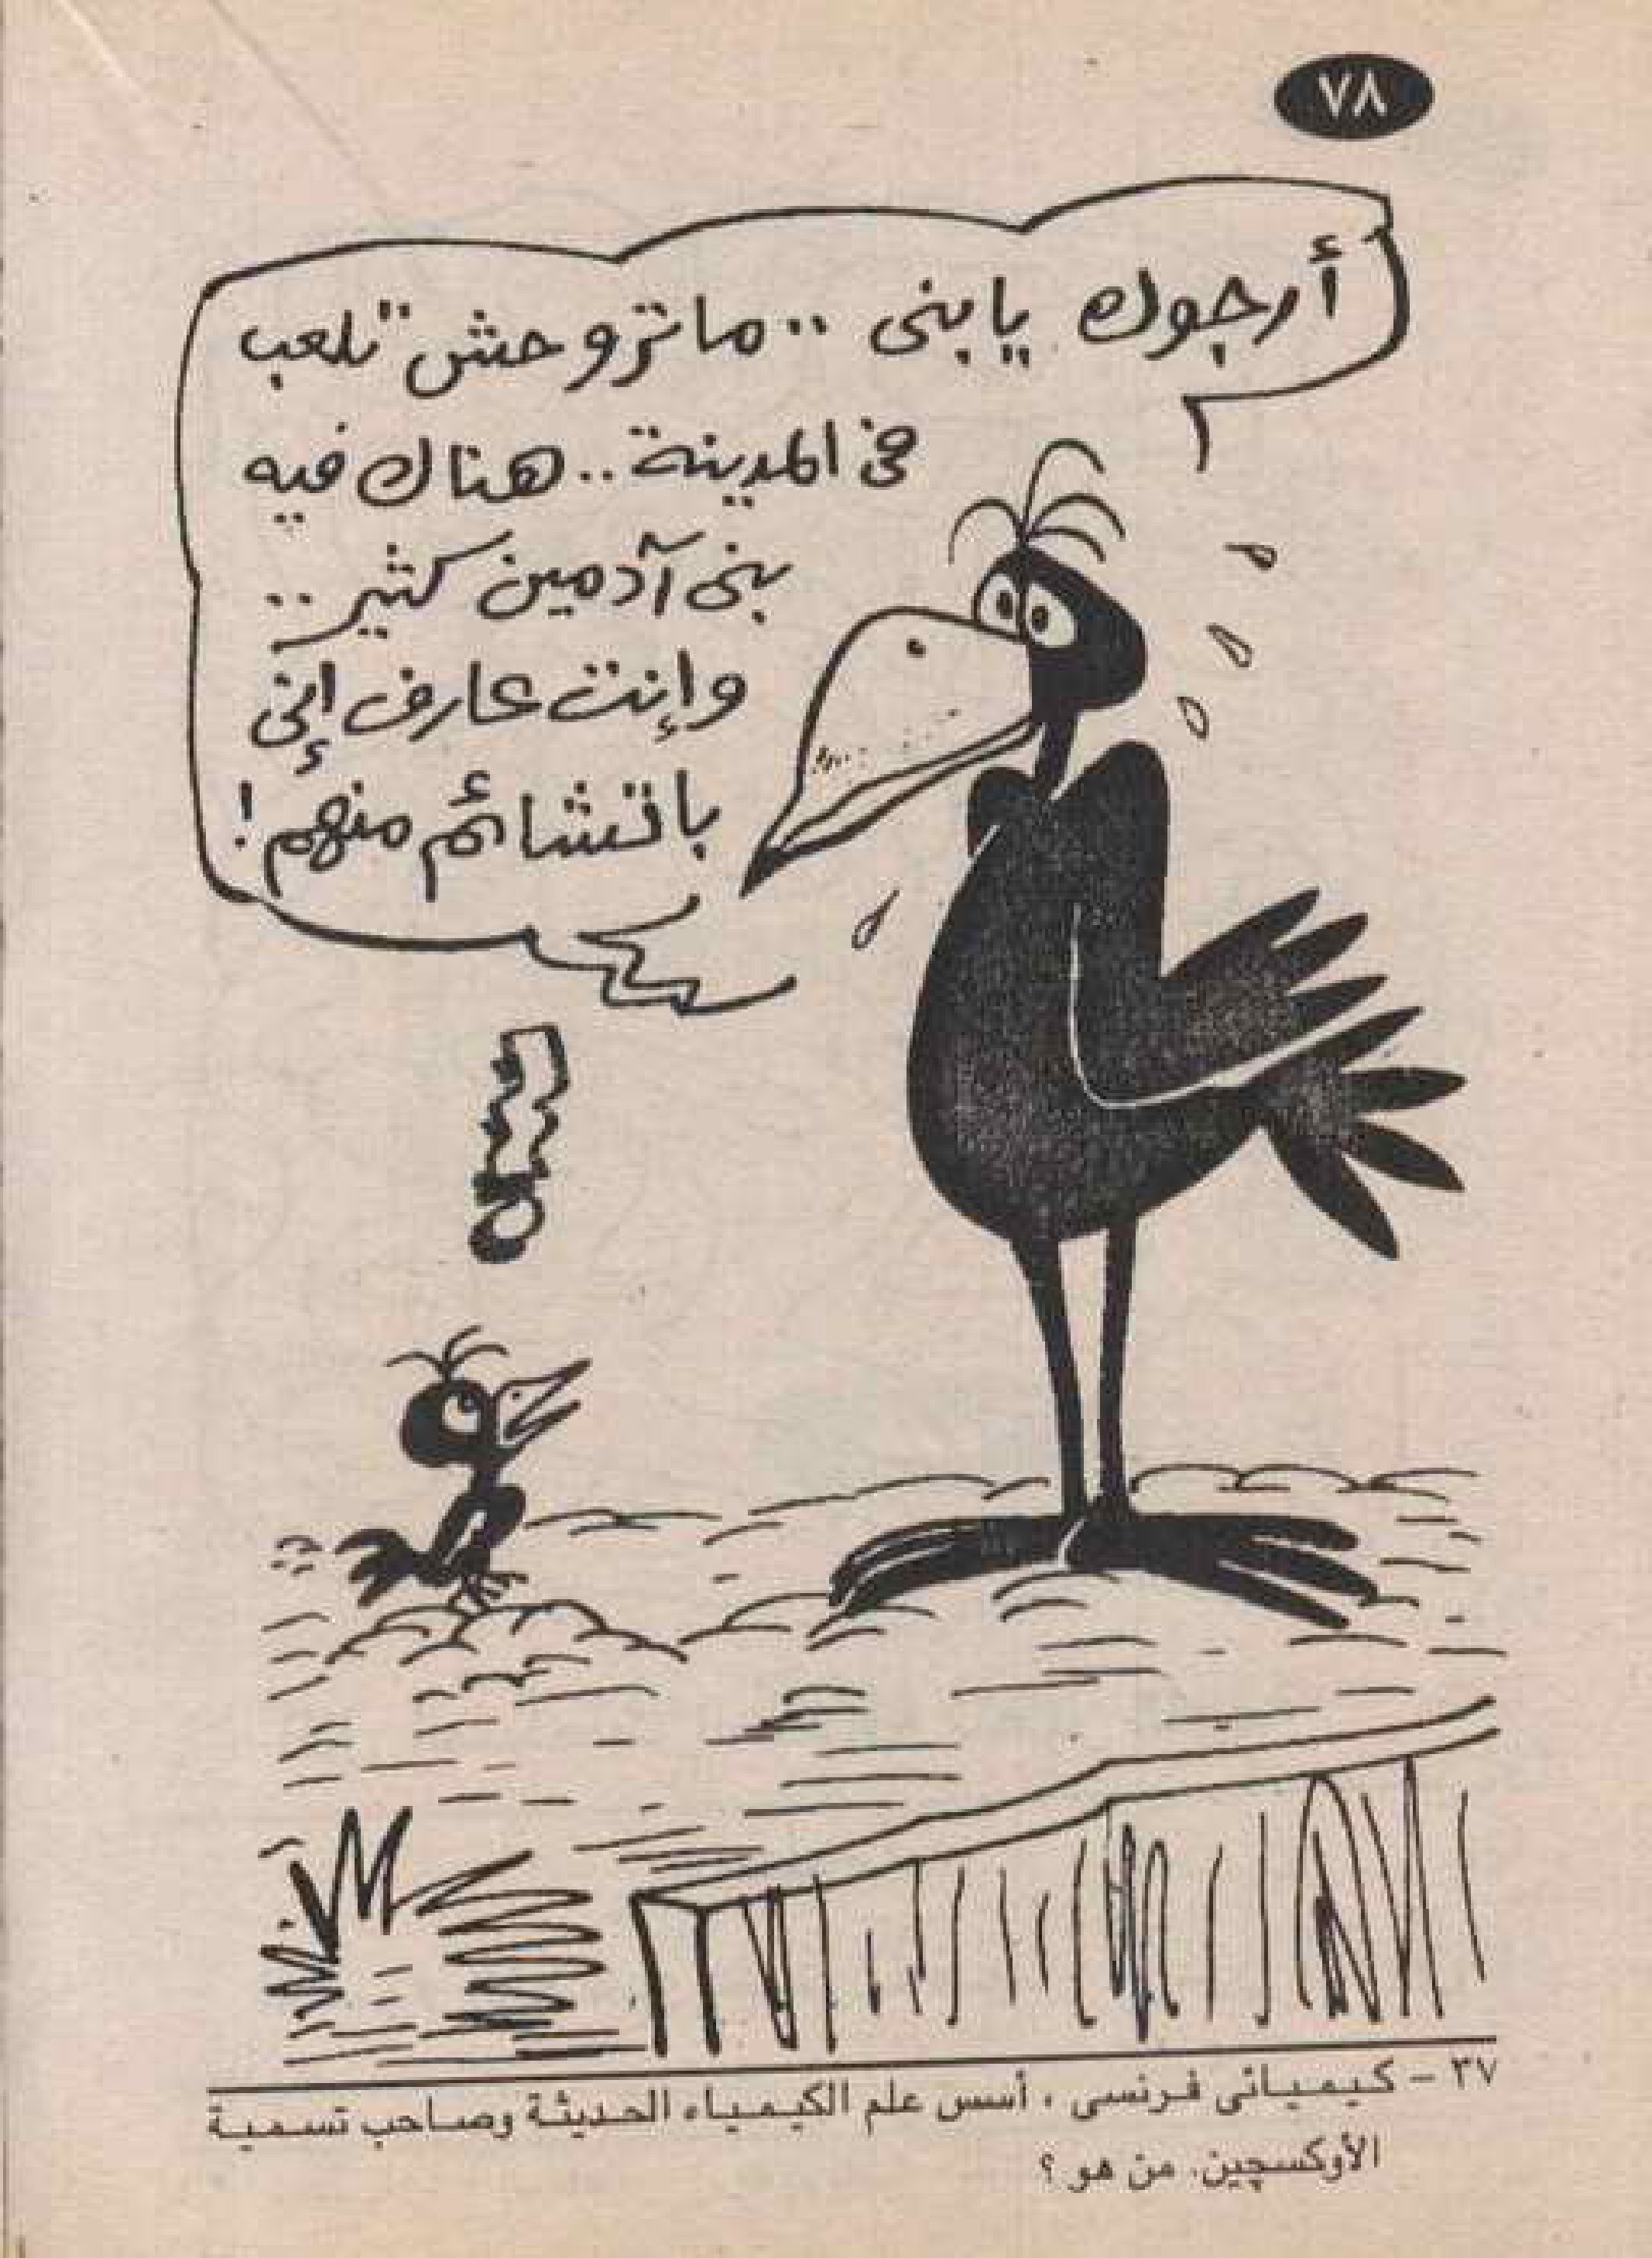 ٧٨
أرجوك يابنى .. ماتروحش تلعب
فى المدينة .. هناك فيه
بنى آدمين كتير ..
وإنت عارف إنى
باتشائم منهم !
٣٧ - كيميائى فرنسى ، أسس علم الكيمياء الحديثة وصاحب تسمية
الأوكسچين. من هو ؟